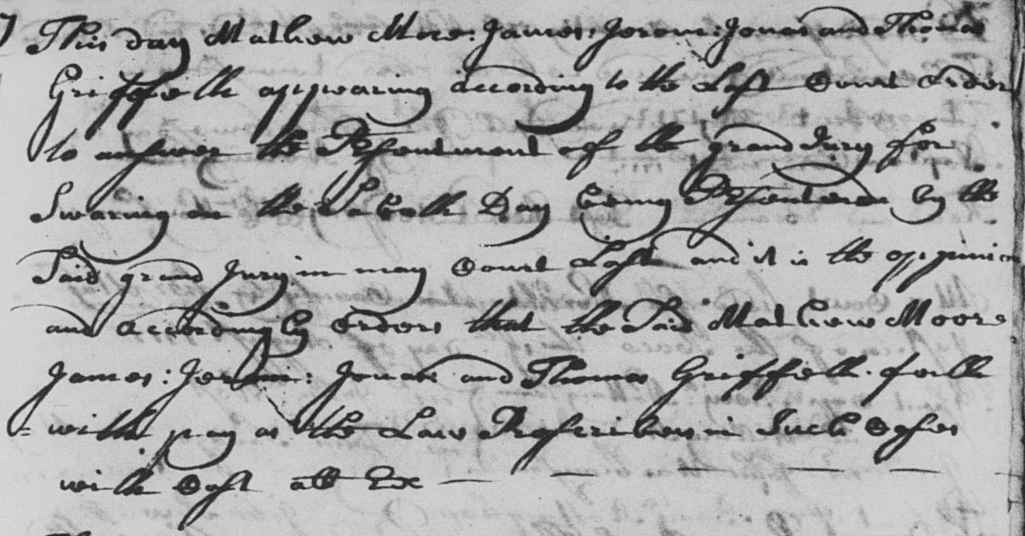 This day Mathew More: James: Jerom: Jonas and Thomas
Griffeth appearing according to the Last Court order
to answer the Presentment of the grand Jury for
Swaring on the Saboth Day being Presented by the
Said grand Jury in may Court Last and it is the oppinion
and accordingly orders that the Said Mathew Moore
James: Jerom: Jonas and Thomas Griffeth forth
= with pay as the Law Prescribes in Such Cases
with Cost als Ex